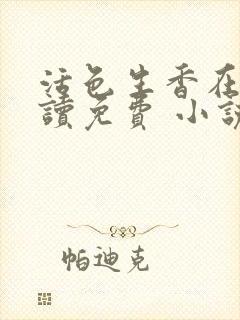 活色生香在
讀免費 小說
帕迪克